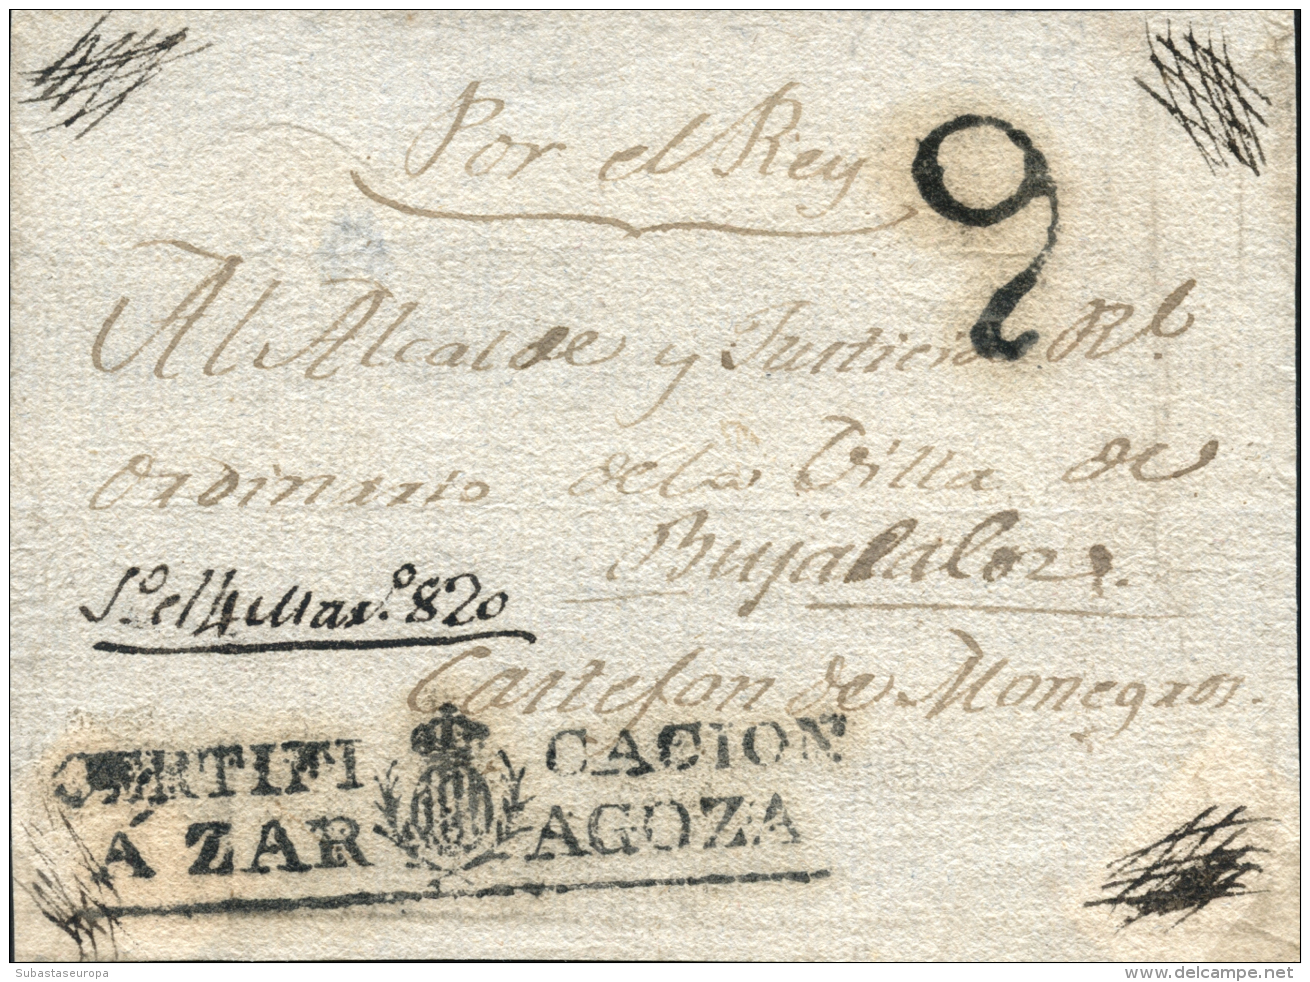 Por el Rey
2
Al Alcalde y Justicia Rl.
ordinario de la Villa de
Bujalaloz.
So. el 4 Marzo. 820
Castejon de Monegros.
CERTIFI CACION
Á ZAR AGOZA
Subastaseuropa
www.delcampe.net